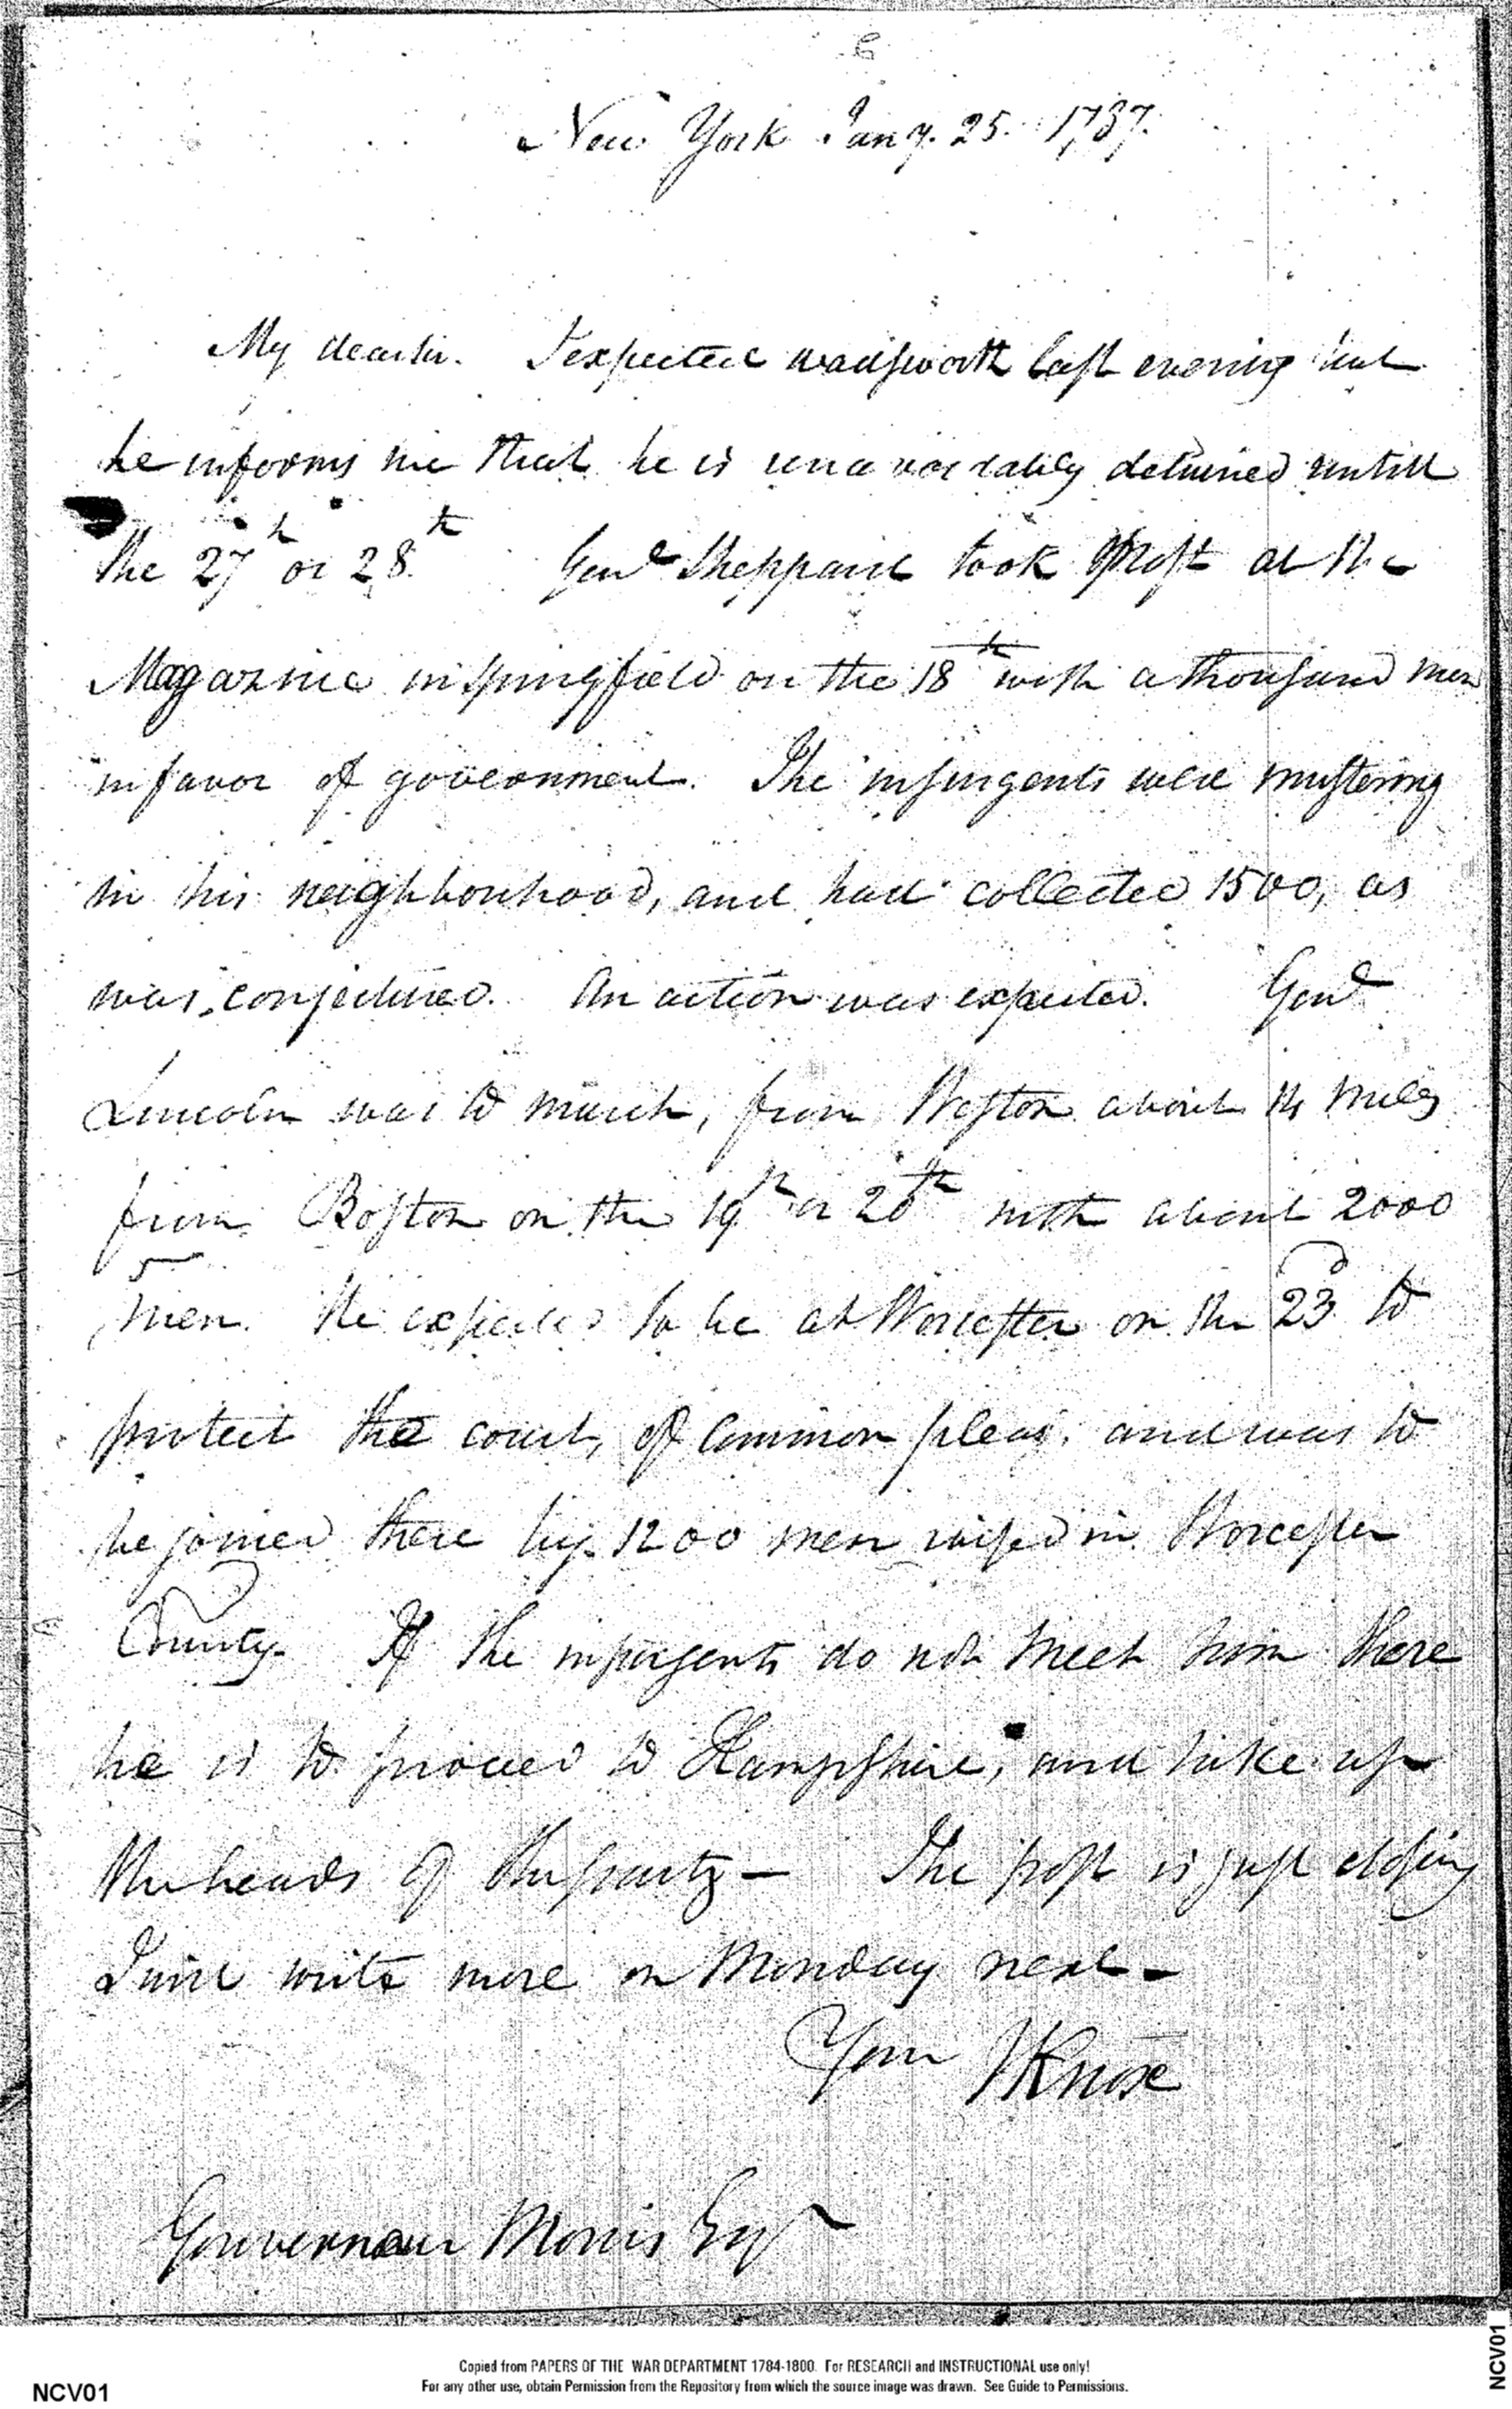 New York Jany. 25. 1787.
My dear sir. I expected wadsworth last evening but
he informs me that he is unavoidably detained untill
the 27th or 28th Genl Sheppard took post at the
Magazine in Springfield on the 18th with a thousand men
in favor of government. The insurgents were mustering
in his neighbourhood, and had collected 1500, as
was conjectured. An action was expected. Genl
Lincoln was to march, from Weston about 14 miles
from Boston on the 19th or 20th with about 2000
men. He expected to be at Worcester on the 23d to
protect the court, of Common pleas, and was to
be joined there by 1200 men raised in Worcester
County. If the insurgents do not meet him there
he is to proceed to Hampshire, and take up
the heads of the party — The post is just closing
I will write more on Monday next —
Your HKnox
Gouverneur Morris Esqr
Copied from PAPERS OF THE WAR DEPARTMENT 1784-1800. For RESEARCH and INSTRUCTIONAL use only!
For any other use, obtain Permission from the Repository from which the source image was drawn. See Guide to Permissions.
NCV01
NCV01